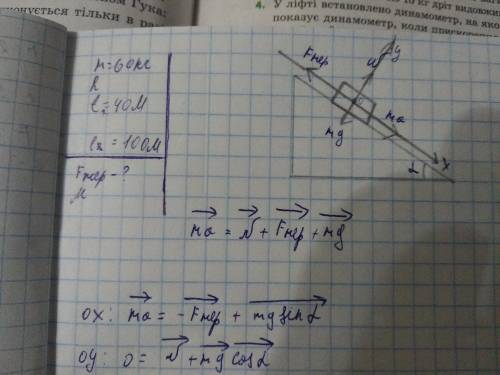 ном Гука:
нується тільки в ра
10 кг дріт видовжи
4. У ліфті встановлено динамометр, на яко
показує динамометр, коли
m = 60кг
h
l = 40м
l₂ = 100м
Fтер - ?
M
Fтер
N
y
ma
mg
x
α
ma = N + Fтер + mg
ox: ma = -Fтер + mg sin α
oy: 0 = N + mg cos α